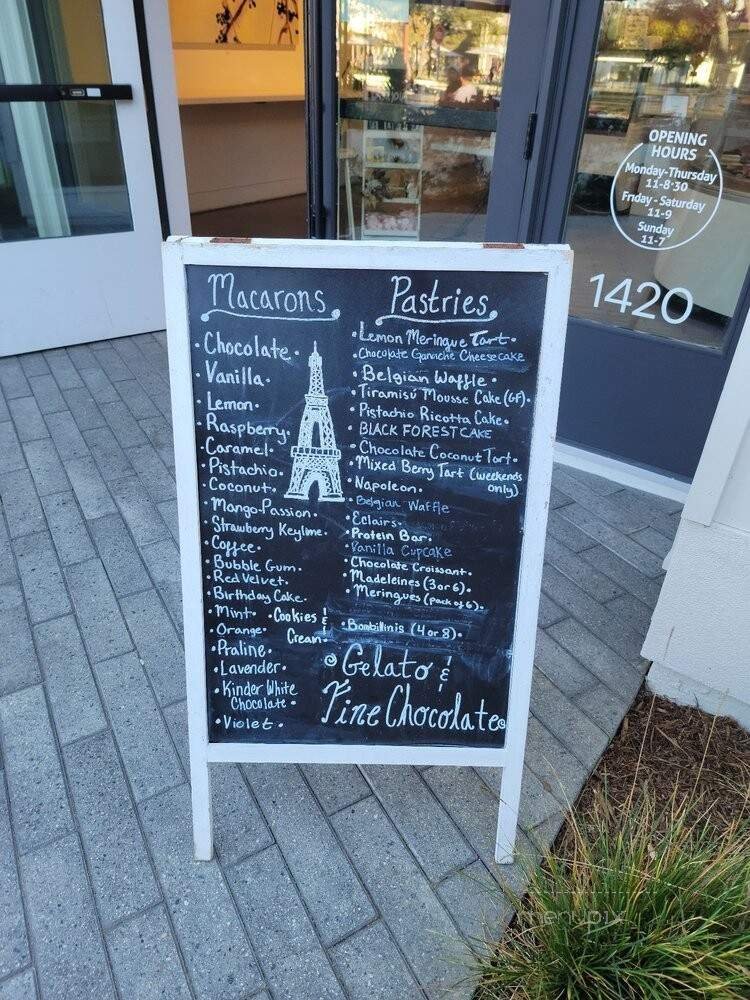 OPENING
HOURS
Monday-Thursday
11-8:30
Friday-Saturday
11-9
Sunday
11-7
1420
Macarons
• Chocolate •
• Vanilla •
• Lemon •
• Raspberry •
• Caramel •
• Pistachio •
• Coconut •
• Mango-Passion •
• Strawberry Keylime •
• Coffee •
• Bubble Gum •
• Red Velvet •
• Birthday Cake •
• Mint •
• Cookies &
Cream •
• Orange •
• Praline •
• Lavender •
• Kinder White
Chocolate •
• Violet •
Pastries
• Lemon Meringue Tart •
• Chocolate Ganache Cheesecake
• Belgian Waffle •
• Tiramisú Mousse Cake (GF) •
• Pistachio Ricotta Cake •
• BLACK FOREST CAKE
• Chocolate Coconut Tart •
• Mixed Berry Tart (weekends
only) •
• Napoleon •
• Belgian Waffle
• Eclairs •
• Protein Bar •
• Vanilla Cupcake
• Chocolate Croissant •
• Madeleines (3 or 6) •
• Meringues (pack of 6) •
• Bombilinis (4 or 8) •
Gelato &
Fine Chocolate
menupix